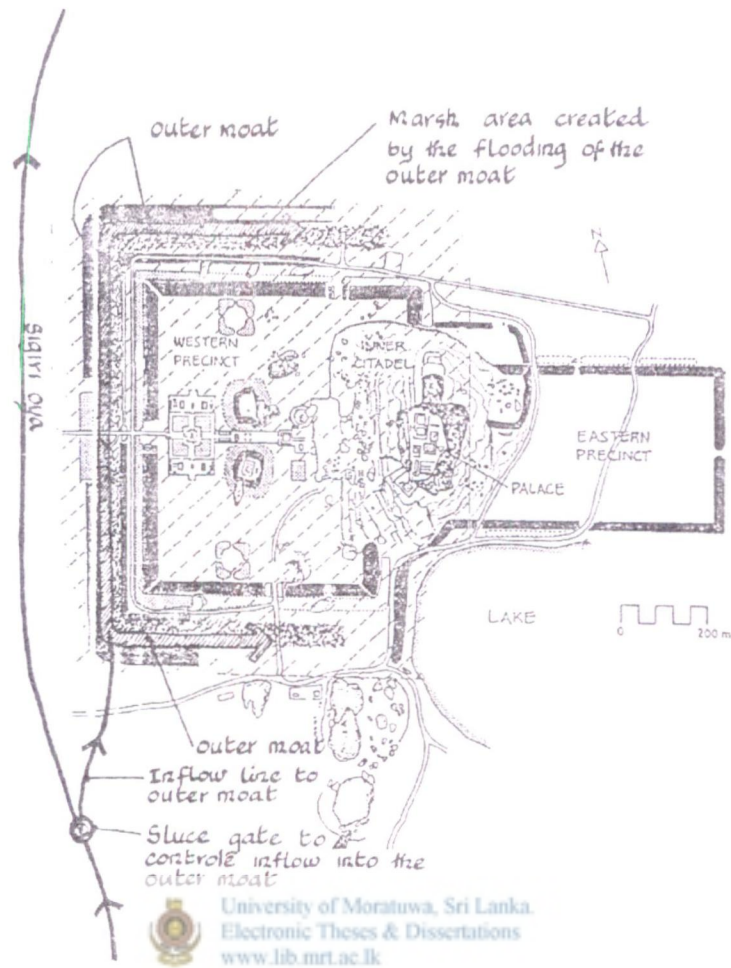 outer moat
Marsh area created
by the flooding of the
outer moat
N
Sigiri Oya
WESTERN
PRECINCT
INNER
CITADEL
EASTERN
PRECINCT
PALACE
LAKE
0 200 m
outer moat
Inflow line to
outer moat
Sluce gate to
controle inflow into the
outer moat
University of Moratuwa, Sri Lanka.
Electronic Theses & Dissertations
www.lib.mrt.ac.lk